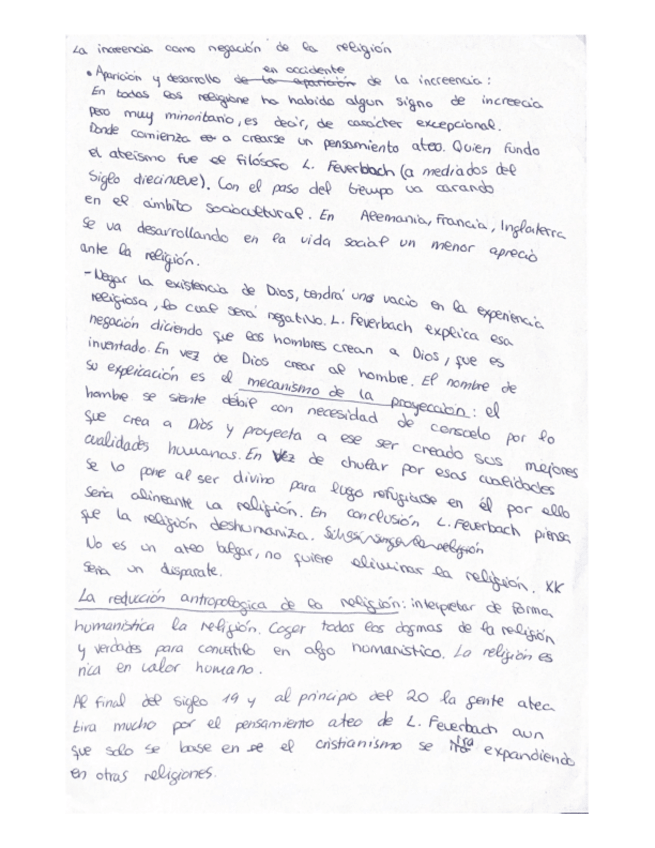 La increencia como negación de la religión
• Aparición y desarrollo de la aparición en occidente de la increencia:
En todas las religione ha habido algun signo de increecia
pero muy minoritario, es decir, de carácter excepcional.
Donde comienza a crearse un pensamiento ateo. Quien fundo
el ateísmo fue el filósofo L. Feuerbach (a mediados del
Siglo diecinueve). Con el paso del tiempo va
en el ámbito sociocultural. En Alemania, Francia, Inglaterra
se va desarrollando en la vida social un menor aprecio
ante la religión.
- Negar la existencia de Dios, tendrá un vacio en la experiencia
religiosa, lo cual será negativo. L. Feverbach explica esa
negación diciendo que los hombres crean a Dios, que es
inventado. En vez de Dios crear al hombre. El nombre de
su explicación es el mecanismo de la proyección: el
hombre se siente débil con necesidad de por lo
que crea a Dios y proyecta a ese ser creado sus mejores
cualidades humanas. En vez de chular por esas cualidades
se lo pone al ser divino para luego refugiarse en él por ello
seria alineante la religión. En conclusión L. Feuerbach piensa
que la religión deshumaniza.
No es un ateo bulgar, no quiere eliminar la religión. XK
seria un disparate.
La reducción antropológica de la religión: interpretar de forma
humanística la religión. Coger todos los dogmas de la religión
y verdades para convertilo en algo homanistico. La religión es
rica en valor homano.
Al final del siglo 19 y al principio del 20 la gente atea
tira mucho por el pensamiento ateo de L. Feuerbach aun
que solo se base en el cristianismo se irá expandiendo
en otras religiones.